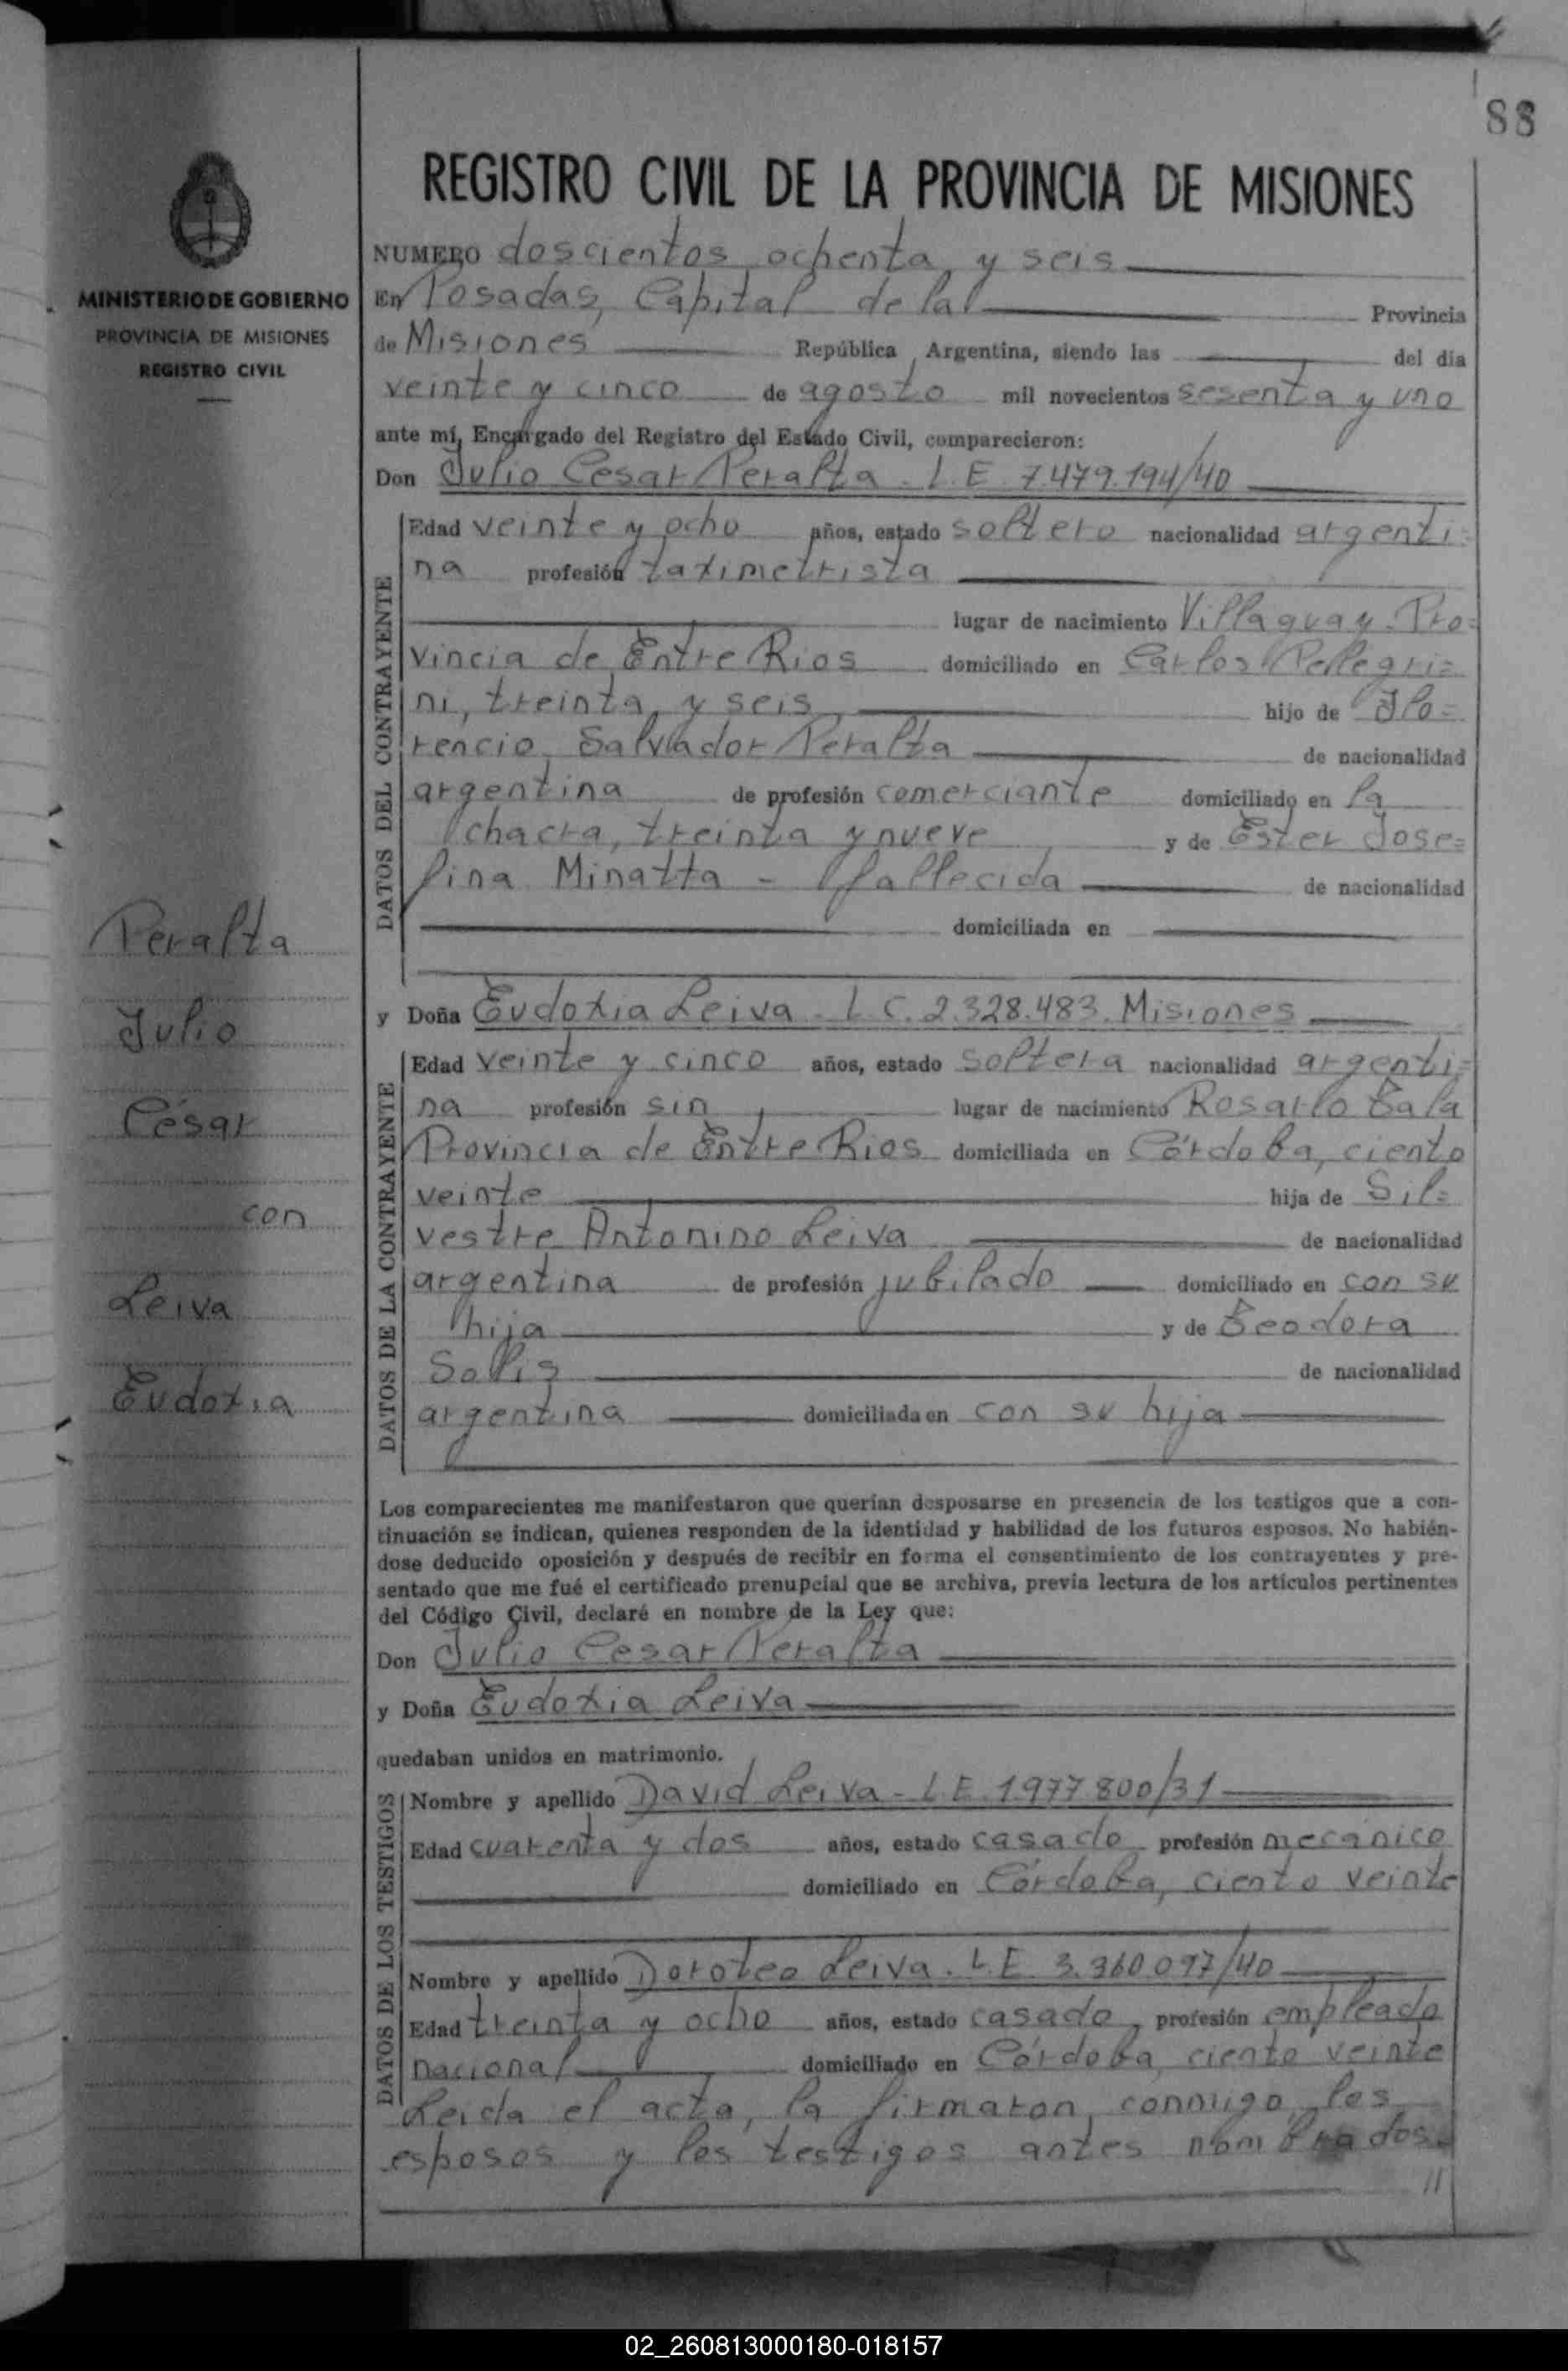 88
REGISTRO CIVIL DE LA PROVINCIA DE MISIONES
MINISTERIO DE GOBIERNO
PROVINCIA DE MISIONES
REGISTRO CIVIL
Peralta
Julio
César
con
Leiva
Eudoxia
NUMERO doscientos ochenta y seis
En Posadas, Capital de la Provincia
de Misiones República Argentina, siendo las del día
veinte y cinco de agosto mil novecientos sesenta y uno
ante mí, Encargado del Registro del Estado Civil, comparecieron:
Don Julio Cesar Peralta - L.E. 7.479.194/40
DATOS DEL CONTRAYENTE
Edad veinte y ocho años, estado soltero nacionalidad argenti=
na profesión taximetrista
lugar de nacimiento Villaguay - Pro=
vincia de Entre Rios domiciliado en Carlos Pellegri=
ni, treinta y seis hijo de Flo=
rencio Salvador Peralta de nacionalidad
argentina de profesión comerciante domiciliado en la
chacra, treinta y nueve y de Ester Jose=
fina Minatta - fallecida de nacionalidad
domiciliada en
y Doña Eudoxia Leiva - L.C. 2.328.483. Misiones
DATOS DE LA CONTRAYENTE
Edad veinte y cinco años, estado soltera nacionalidad argenti=
na profesión sin lugar de nacimiento Rosario Tala
Provincia de Entre Rios domiciliada en Córdoba, ciento
veinte hija de Sil=
vestre Antonino Leiva de nacionalidad
argentina de profesión jubilado domiciliado en con su
hija y de Teodora
Solis de nacionalidad
argentina domiciliada en con su hija
Los comparecientes me manifestaron que querían desposarse en presencia de los testigos que a con-
tinuación se indican, quienes responden de la identidad y habilidad de los futuros esposos. No habién-
dose deducido oposición y después de recibir en forma el consentimiento de los contrayentes y pre-
sentado que me fué el certificado prenupcial que se archiva, previa lectura de los artículos pertinentes
del Código Civil, declaré en nombre de la Ley que:
Don Julio Cesar Peralta
y Doña Eudoxia Leiva
quedaban unidos en matrimonio.
DATOS DE LOS TESTIGOS
Nombre y apellido David Leiva - L.E. 1.977.800/31
Edad cuarenta y dos años, estado casado profesión mecánico
domiciliado en Córdoba, ciento veinte
Nombre y apellido Doroteo Leiva. L.E. 3.360.097/40
Edad treinta y ocho años, estado casado, profesión empleado
nacional domiciliado en Córdoba, ciento veinte
Leida el acta, la firmaron conmigo, los
esposos y los testigos antes nombrados.
//
02_260813000180-018157